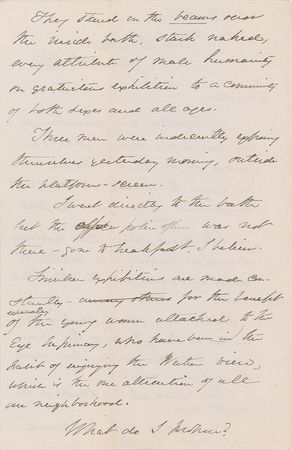 They stand on the beams over
the inside bath, stark naked,
every attribute of male humanity
on gratuitous exhibition to a community
of both sexes and all ages.
Three men were indecently exposing
themselves yesterday morning, outside
the platform-screen.
I went directly to the bath
but the police officer was not
there - gone to breakfast, I believe.
Similar exhibitions are made con-
stantly - for the benefit
especially
of the young women attached to the
Eye Infirmary, who have been in the
habit of enjoying the Water view,
which is the one attraction of all
our neighborhood.
What do I wish?